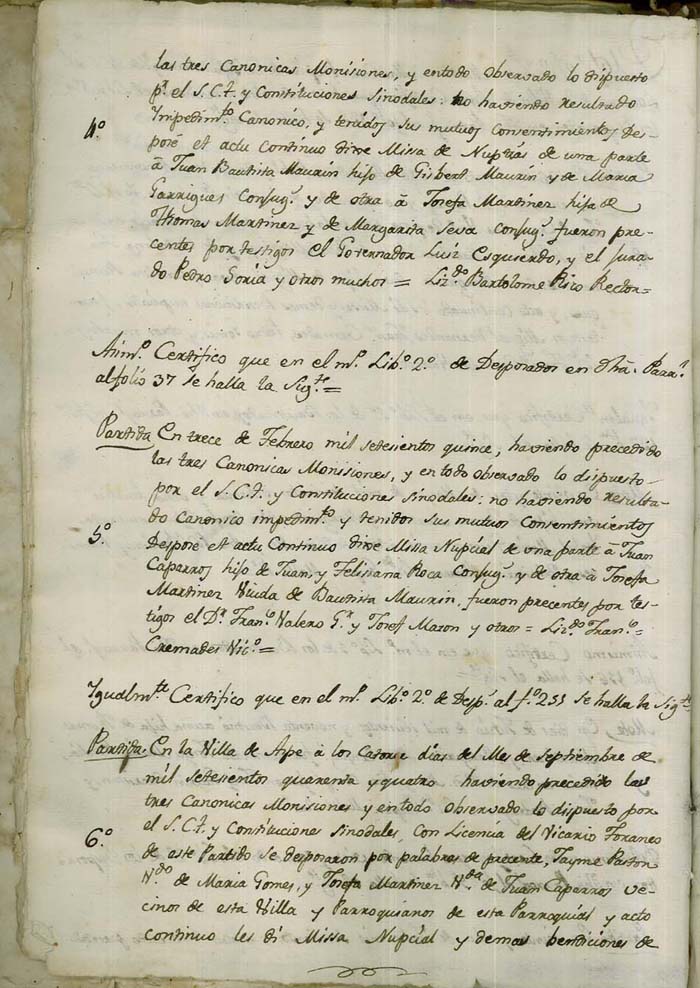 las tres Canonicas Monisiones, y en todo observado lo dispuesto
pr. el S.C.T. y Constituciones Sinodales: no haviendo resultado
4º. Impedimto. Canonico, y tenidos sus mutuos Consentimientos Des-
posé et actu Continuo dixe Missa de Nupcias de una parte
â Juan Bautista Maurin hijo de Gisbert Maurin y de Maria
Garrigues Conjug.s y de otra â Josefa Martinez hija de
Thomas Martinez y de Margarita Seva Conjug.s fueron pre-
centes por testigos el Governador Luis Esquerdo, y el Jura-
do Pedro Soria y otros muchos = Lizdo. Bartolome Rico Rector =
Atimo. Certifico que en el mo. Libo. 2º. de Desposados en dha. Parra.
al folio 37 se halla la Sigte. =
Partida En trece de Febrero mil setesientos quince, haviendo precedido
las tres Canonicas Monisiones, y en todo observado lo dispuesto
por el S.C.T. y Constituciones sinodales: no haviendo resulta-
do canonico impedimto. y tenidos sus mutuos Consentimientos
5º. Desposé et actu Continuo dixe Missa Nupcial de una parte â Juan
Caparros hijo de Juan, y Felisiana Roca Conjug.s y de otra â Josefa
Martinez Viuda de Bautista Maurin, fueron precentes por tes-
tigos el Dr. Frano. Valero Gr. y Josef Mazon y otros = Lizdo. Frano. =
Cremades Vico. =
Igualmte. Certifico que en el mo. Libo. 2º. de Desp.s al fo. 255 se halla la Sigte.
Partida. En la Villa de Aspe â los Catorce dias del Mes de Septiembre de
mil setesientos quarenta y quatro haviendo precedido las
tres Canonicas Monisiones y en todo observado lo dispuesto por
6º. el S.C.T. y Constituciones sinodales, con Licencia del Vicario Foraneo
de este Partido se desposaron por palabras de precente, Jayme Pastor
Vdo. de Maria Gomes, y Josefa Martinez Vda. de Juan Caparros ve-
cinos de esta Villa y Parroquianos de esta Parroquial y acto
continuo les di Missa Nupcial y demas bendiciones de